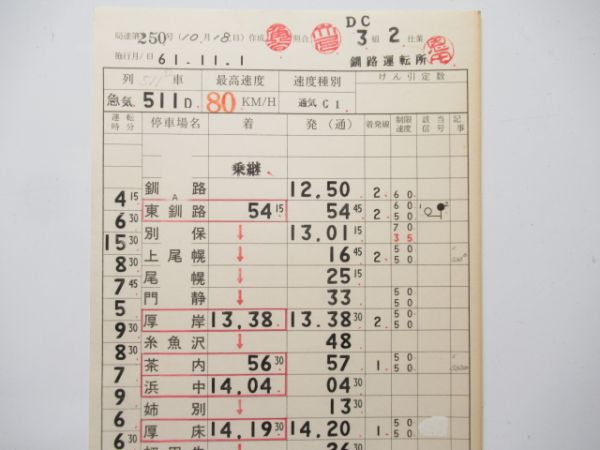 局達第250号(10月18日)作成 照合 DC 3組 2仕業
施行月/日 61.11.1 釧路運転所
列 車 最高速度 速度種別 けん引定数
急気 511D 80KM/H 通気C1
運転時分 停車場名 着 発(通) 着発線 制限速度 該当信号 記事
乗継
釧路 12.50 2 60
4 15 A 60 50
東釧路 54 15 54 45 2 50
6 30 別保 ↓ 13.01 15 70 35
15 30 上尾幌 ↓ 16 45 2 50 50
8 30 尾幌 ↓ 25 15
7 45 門静 ↓ 33 50 50
5 厚岸 13.38 13.38 30 2 50 50
9 30 糸魚沢 ↓ 48
8 30 茶内 56 30 57 1 50 50
7 浜中 14.04 04 30
9 姉別 ↓ 13 30
6 厚床 14.19 30 14.20 1 50 50
6 30